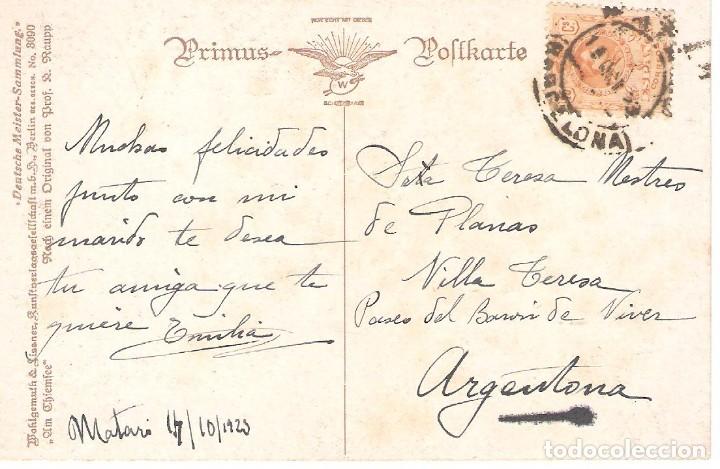 "Deutsche Meister-Sammlung."
Wohlgemuth & Lissner, Kunstverlagsgesellschaft m.b.H., Berlin No. 3090
"Am Chiemsee" Nach einem Original von Prof. K. Raupp
Primus-Postkarte
W
Muchas felicidades
junto con mi
marido te desea
tu amiga que te
quiere Emilia
Mataró 14/10/1923
Sta Teresa Mestres
de Planas
Villa Teresa
Paseo del Baron de Viver
Argentona
todocoleccion